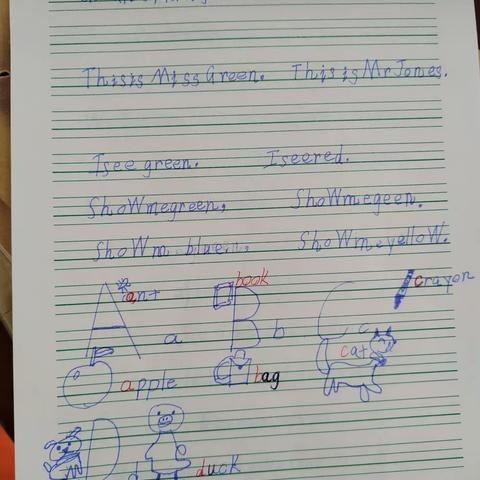 This is Miss Green. This is Mr Jones.
I see green. I see red.
ShoW me green, ShoW me geen.
ShoW m blue ShoW me yelloW.
A ant a B book b C c crayon
apple bag cat
D d duck